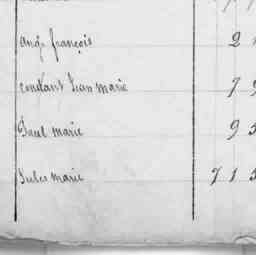 ang. françois 2
constant Jean marie 7 9
Paul marie 9 5
Jules marie 7 1 5